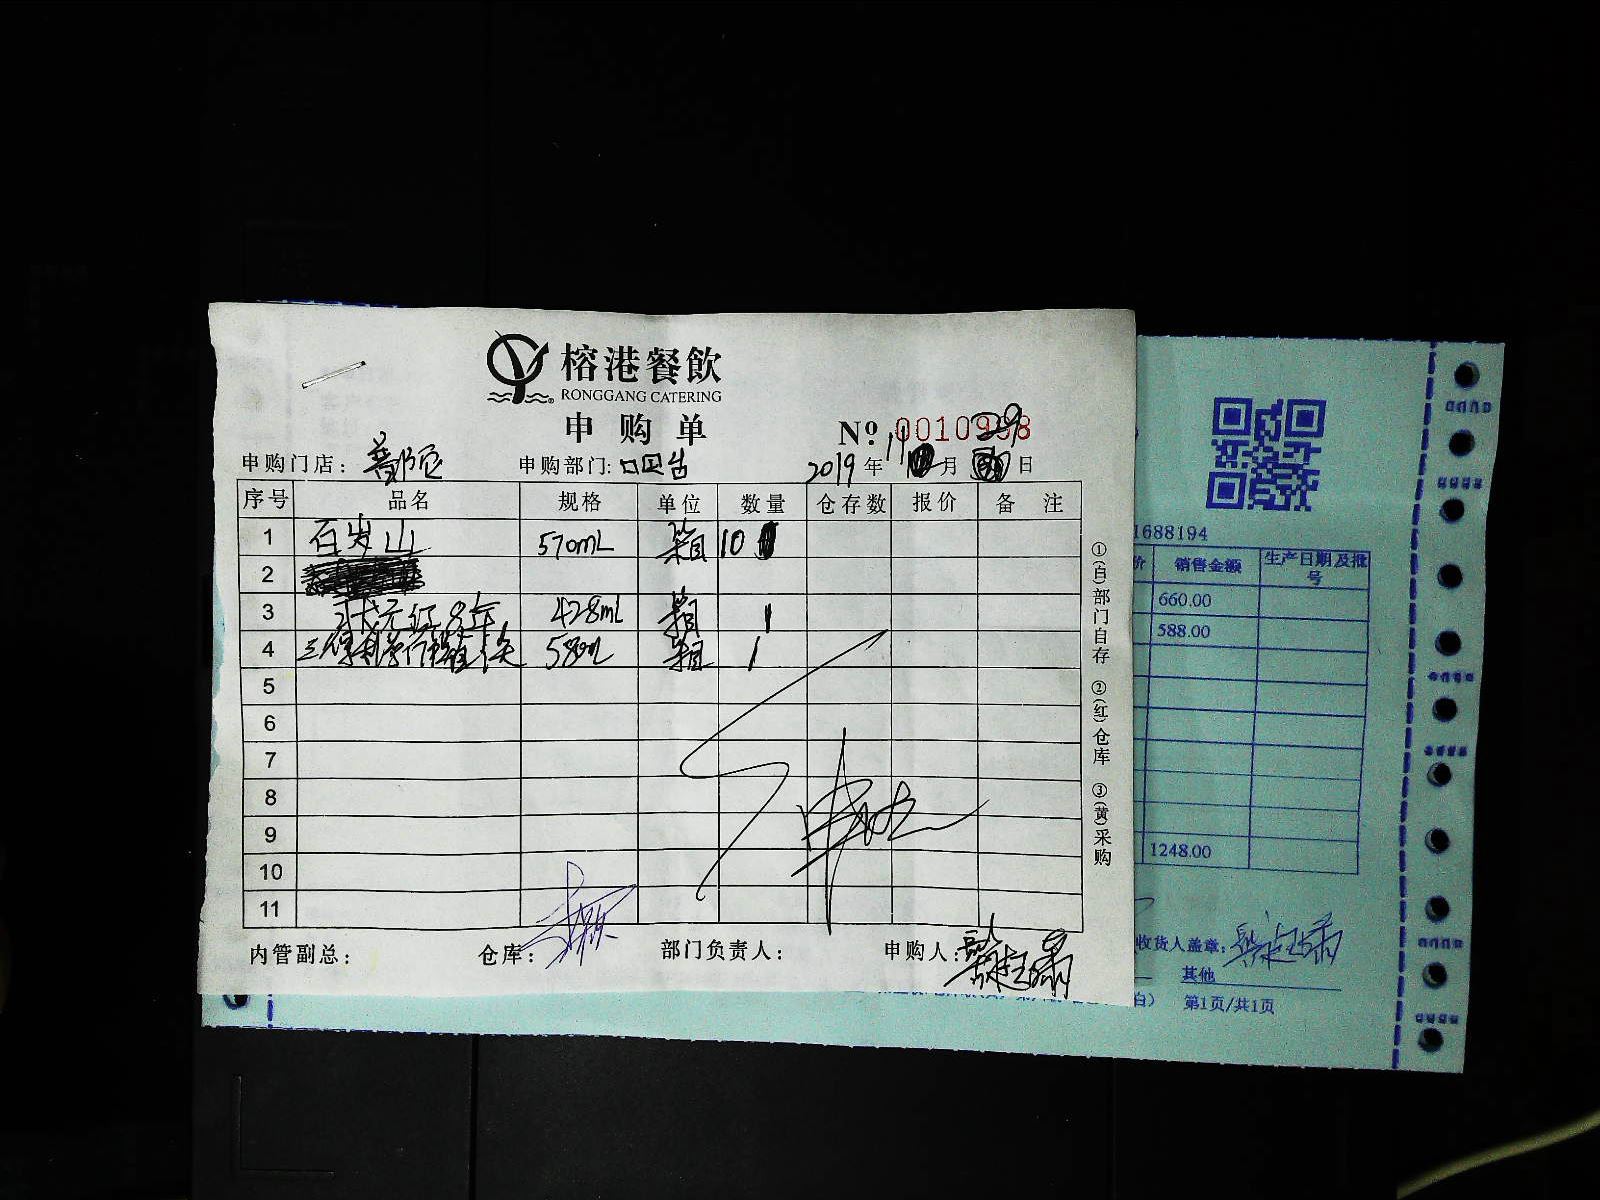 榕港餐飲
RONGGANG CATERING
申购单
№ 0010998
申购门店: 申购部门: 台 2019年11月29日
序号 品名 规格 单位 数量 仓存数 报价 备注
1 百岁山 570mL 箱 10
2
3 8年 428mL 箱 1
4 580mL 箱 1
5
6
7
8
9
10
11
内管副总: 仓库: 部门负责人: 申购人:
①(白)部门自存 ②(红)仓库 ③(黄)采购
1688194
价 销售金额 生产日期及批号
660.00
588.00
1248.00
收货人盖章:
其他
白) 第1页/共1页